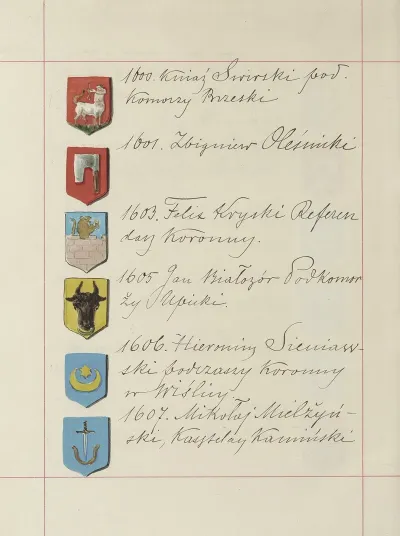 1600. Kniaź Świrski pod.
Komorzy Brzeski
1601. Zbigniew Oleśnicki
1603. Felix Kryski Referen
darz Koronny.
1605 Jan Białozór Podkomor
ży Upicki.
1606. Hieronim Sieniaw-
ski podczaszy Koronny
w Wiślicy.
1607. Mikołaj Mielżyń-
ski, Kasztelan Kamiński